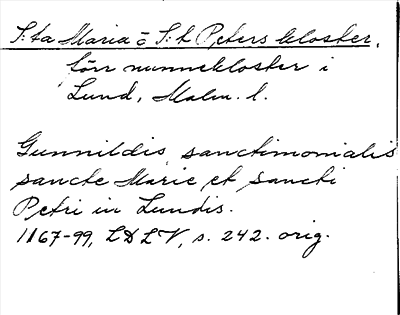 S:ta Maria o S:t Peters kloster,
förr nunnekloster i
Lund, Malm. l.
Gunnildis sanctimonialis
sancte Marie et sancti
Petri in Lundis.
1167-99, LDLV, s. 242. orig.